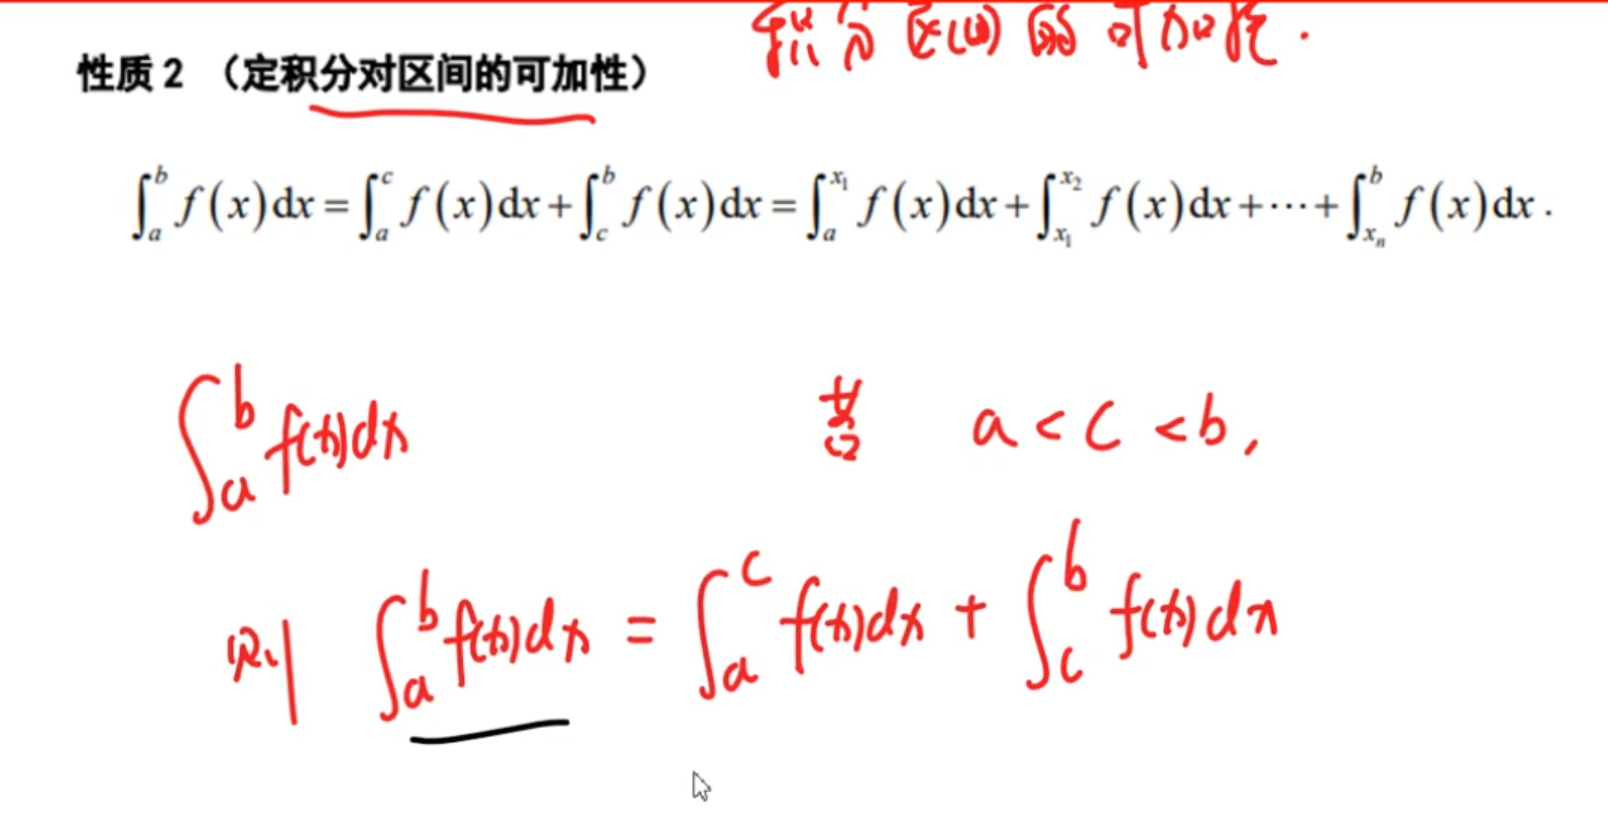 积分区间的可加性.
性质 2 （定积分对区间的可加性）
∫_a^b f(x)dx = ∫_a^c f(x)dx + ∫_c^b f(x)dx = ∫_a^{x₁} f(x)dx + ∫_{x₁}^{x₂} f(x)dx + ⋯ + ∫_{xₙ}^b f(x)dx .
∫_a^b f(x)dx 若 a < c < b,
则 ∫_a^b f(x)dx = ∫_a^c f(x)dx + ∫_c^b f(x)dx